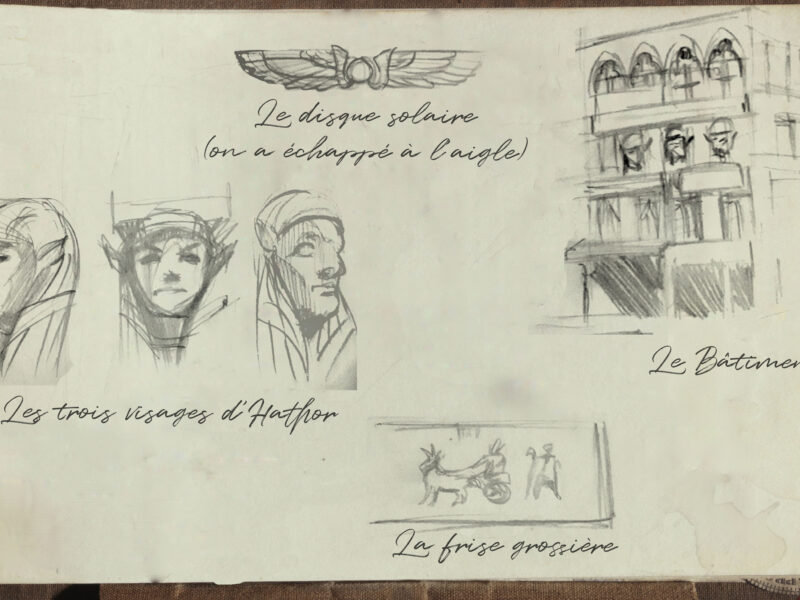 Le disque solaire
(on a échappé à l'aigle)
Le Bâtimen
Les trois visages d'Hathor
La frise grossière